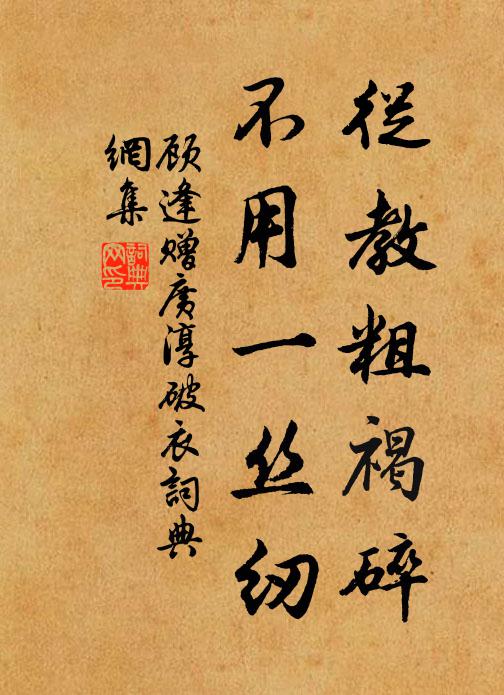 從教粗褐碎
不用一丝纫
顾逢赠廣淳破衣詞典
網集
詞典
网印